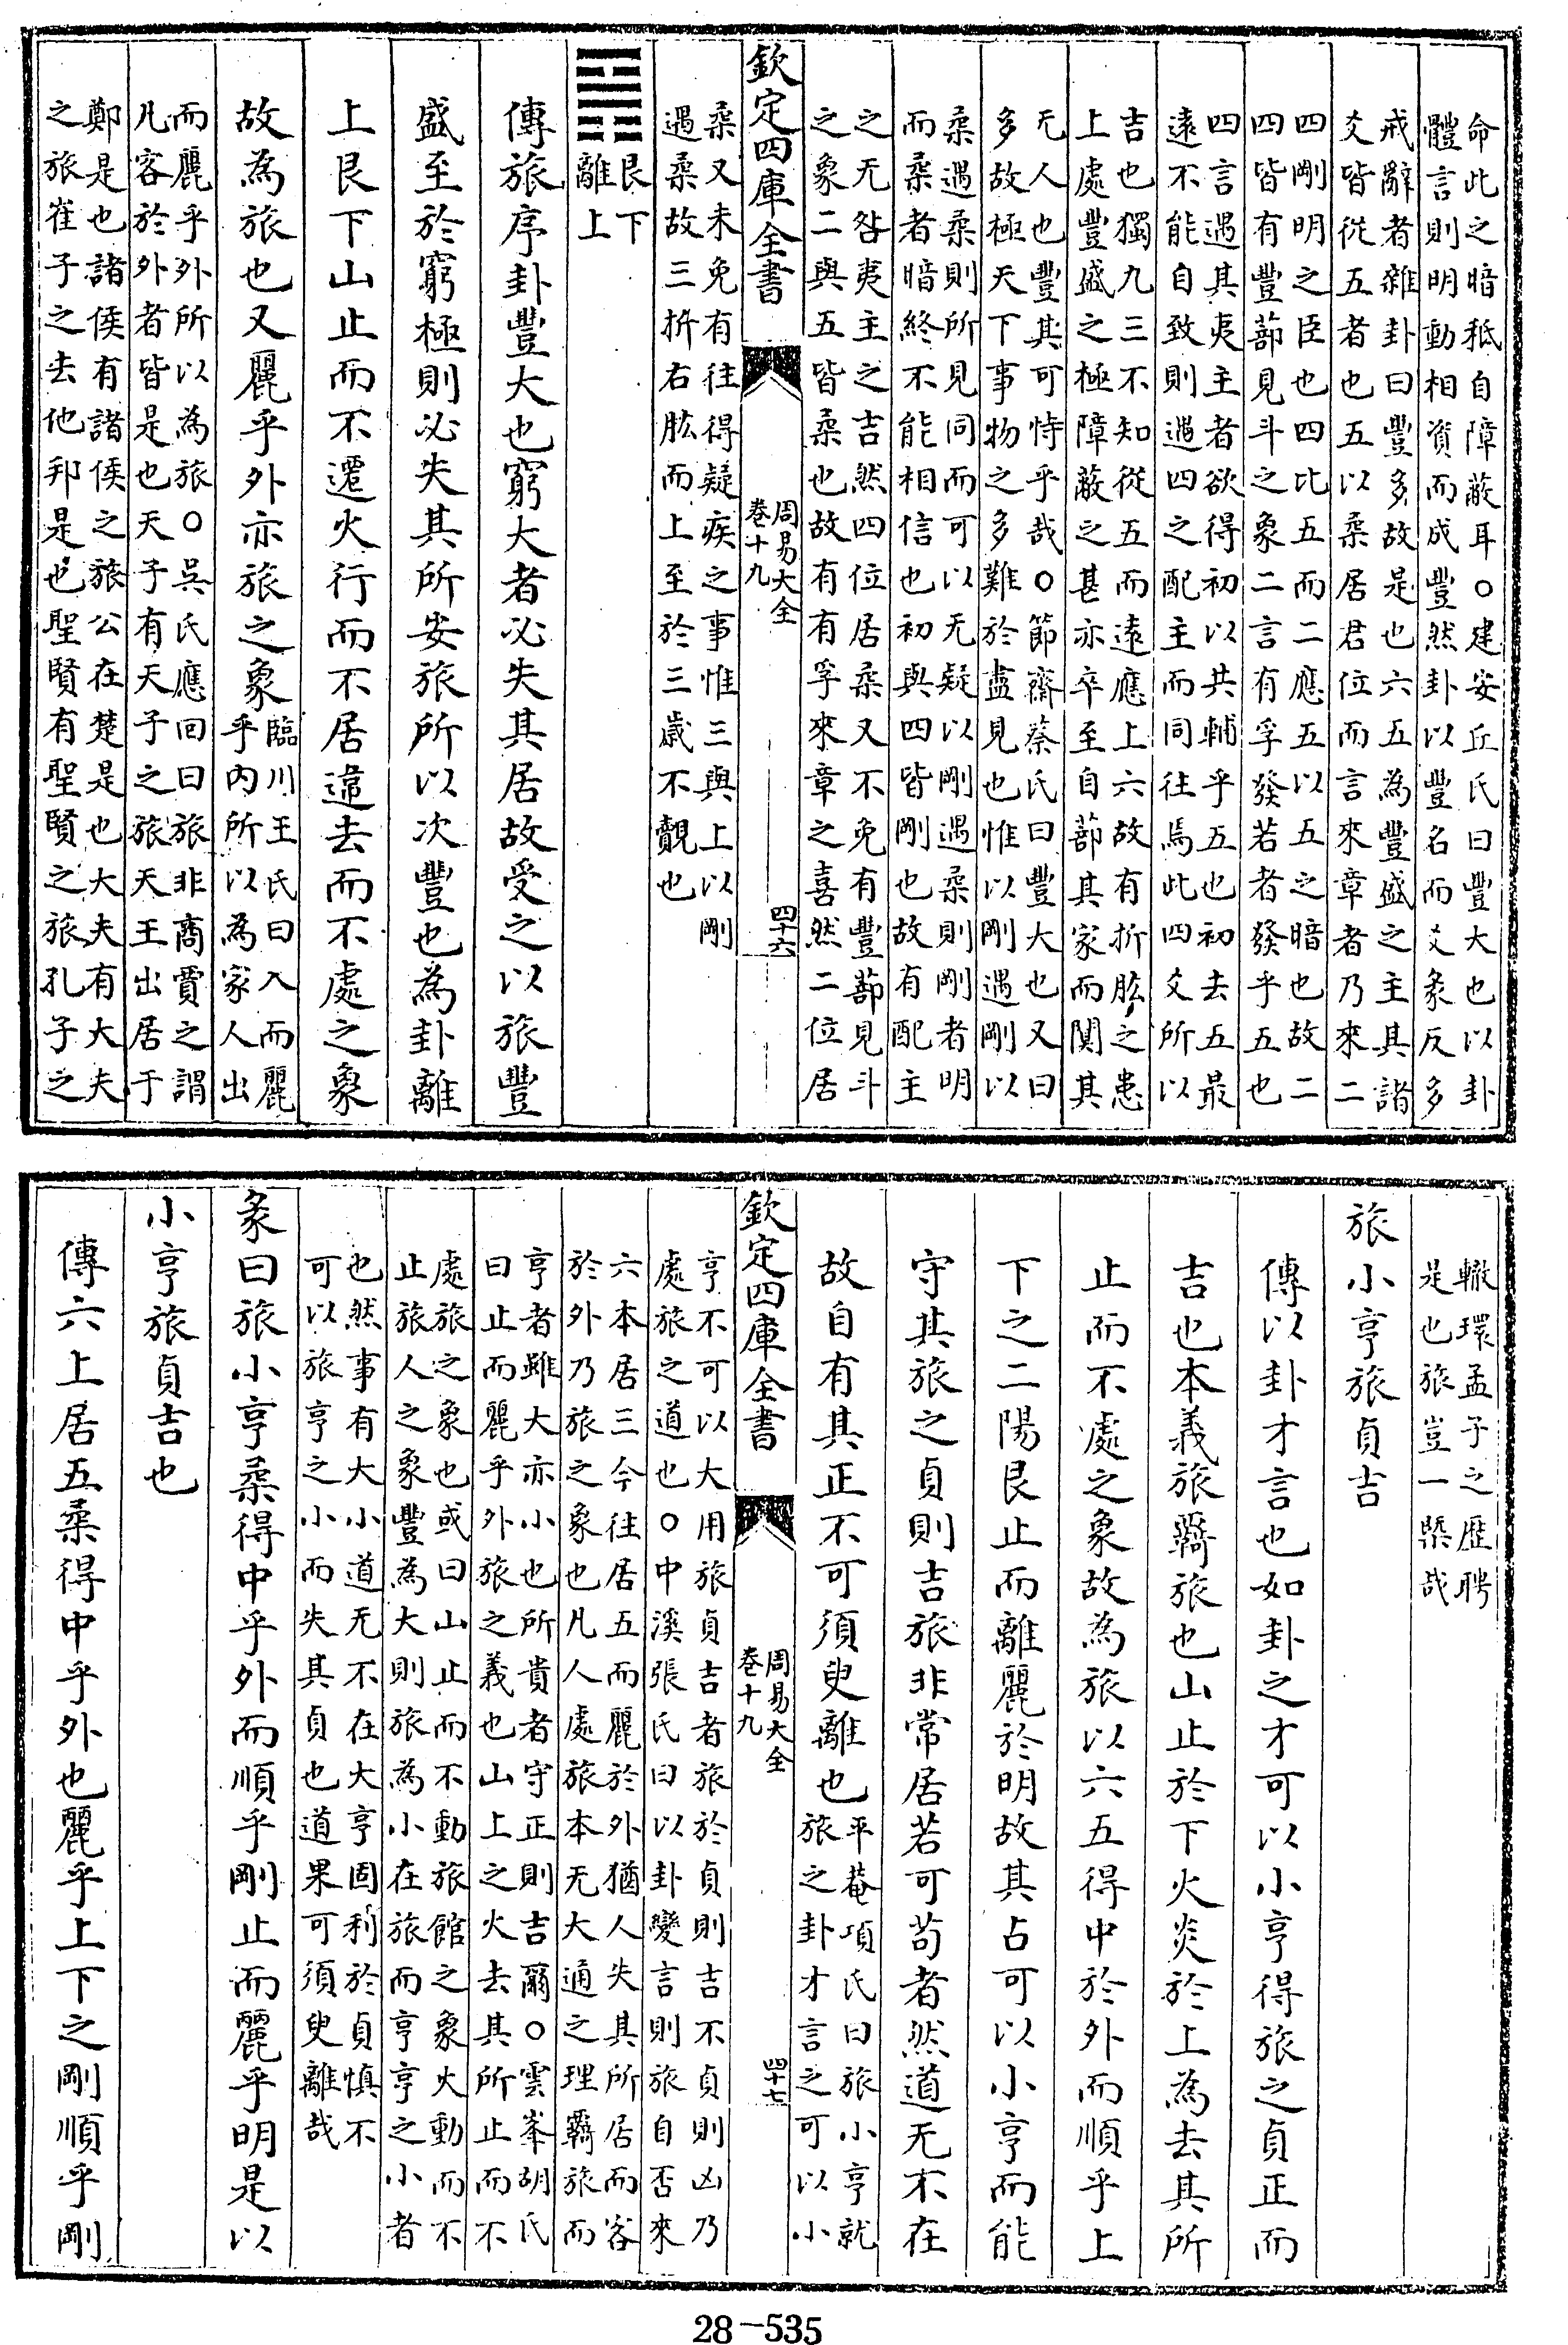 命此之暗秪自障蔽耳○建安丘氏曰豐大也以卦
體言則明動相資而成豐然卦以豐名而爻彖反多
戒辭者雜卦曰豐多故是也六五為豐盛之主其諸
爻皆從五者也五以柔居君位而言來章者乃來二
四剛明之臣也四比五而二應五以五之暗也故二
四皆有豐蔀見斗之象二言有孚發若者發乎五也
四言遇其夷主者欲得初以共輔乎五也初去五最
遠不能自致則遇四之配主而同往焉此四爻所以
吉也獨九三不知從五而遠應上六故有折肱之患
上處豐盛之極障蔽之甚亦卒至自蔀其家而闃其
无人也豐其可恃乎哉○節齋蔡氏曰豐大也又曰
多故極天下事物之多難於盡見也惟以剛遇剛以
柔遇柔則所見同而可以无疑以剛遇柔則剛者明
而柔者暗終不能相信也初與四皆剛也故有配主
之无咎夷主之吉然四位居柔又不免有豐蔀見斗
之象二與五皆柔也故有有孚來章之喜然二位居
欽定四庫全書
周易大全
卷十九
四十六
柔又未免有往得疑疾之事惟三與上以剛
遇柔故三折右肱而上至於三歲不覿也
艮下
離上
傳旅序卦豐大也窮大者必失其居故受之以旅豐
盛至於窮極則必失其所安旅所以次豐也為卦離
上艮下山止而不遷火行而不居違去而不處之象
故為旅也又麗乎外亦旅之象
臨川王氏曰入而麗
乎內所以為家人出
而麗乎外所以為旅○吳氏應回曰旅非商賈之謂
凡客於外者皆是也天子有天子之旅天王出居于
鄭是也諸侯有諸侯之旅公在楚是也大夫有大夫
之旅崔子之去他邦是也聖賢有聖賢之旅孔子之
轍環孟子之歷聘
是也旅豈一槩哉
旅小亨旅貞吉
傳以卦才言也如卦之才可以小亨得旅之貞正而
吉也本義旅羇旅也山止於下火炎於上為去其所
止而不處之象故為旅以六五得中於外而順乎上
下之二陽艮止而離麗於明故其占可以小亨而能
守其旅之貞則吉旅非常居若可苟者然道无不在
故自有其正不可須臾離也
平菴項氏曰旅小亨就
旅之卦才言之可以小
欽定四庫全書
周易大全
卷十九
四十七
亨不可以大用旅貞吉者旅於貞則吉不貞則凶乃
處旅之道也○中溪張氏曰以卦變言則旅自否來
六本居三今往居五而麗於外猶人失其所居而客
於外乃旅之象也凡人處旅本无大通之理羇旅而
亨者雖大亦小也所貴者守正則吉爾○雲峯胡氏
曰止而麗乎外旅之義也山上之火去其所止而不
處旅之象也或曰山止而不動旅館之象火動而不
止旅人之象豐為大則旅為小在旅而亨亨之小者
也然事有大小道无不在大亨固利於貞慎不
可以旅亨之小而失其貞也道果可須臾離哉
彖曰旅小亨柔得中乎外而順乎剛止而麗乎明是以
小亨旅貞吉也
傳六上居五柔得中乎外也麗乎上下之剛順乎剛
28-535